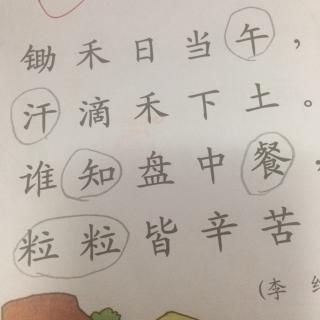 锄禾日当午，
汗滴禾下土。
谁知盘中餐，
粒粒皆辛苦
(李